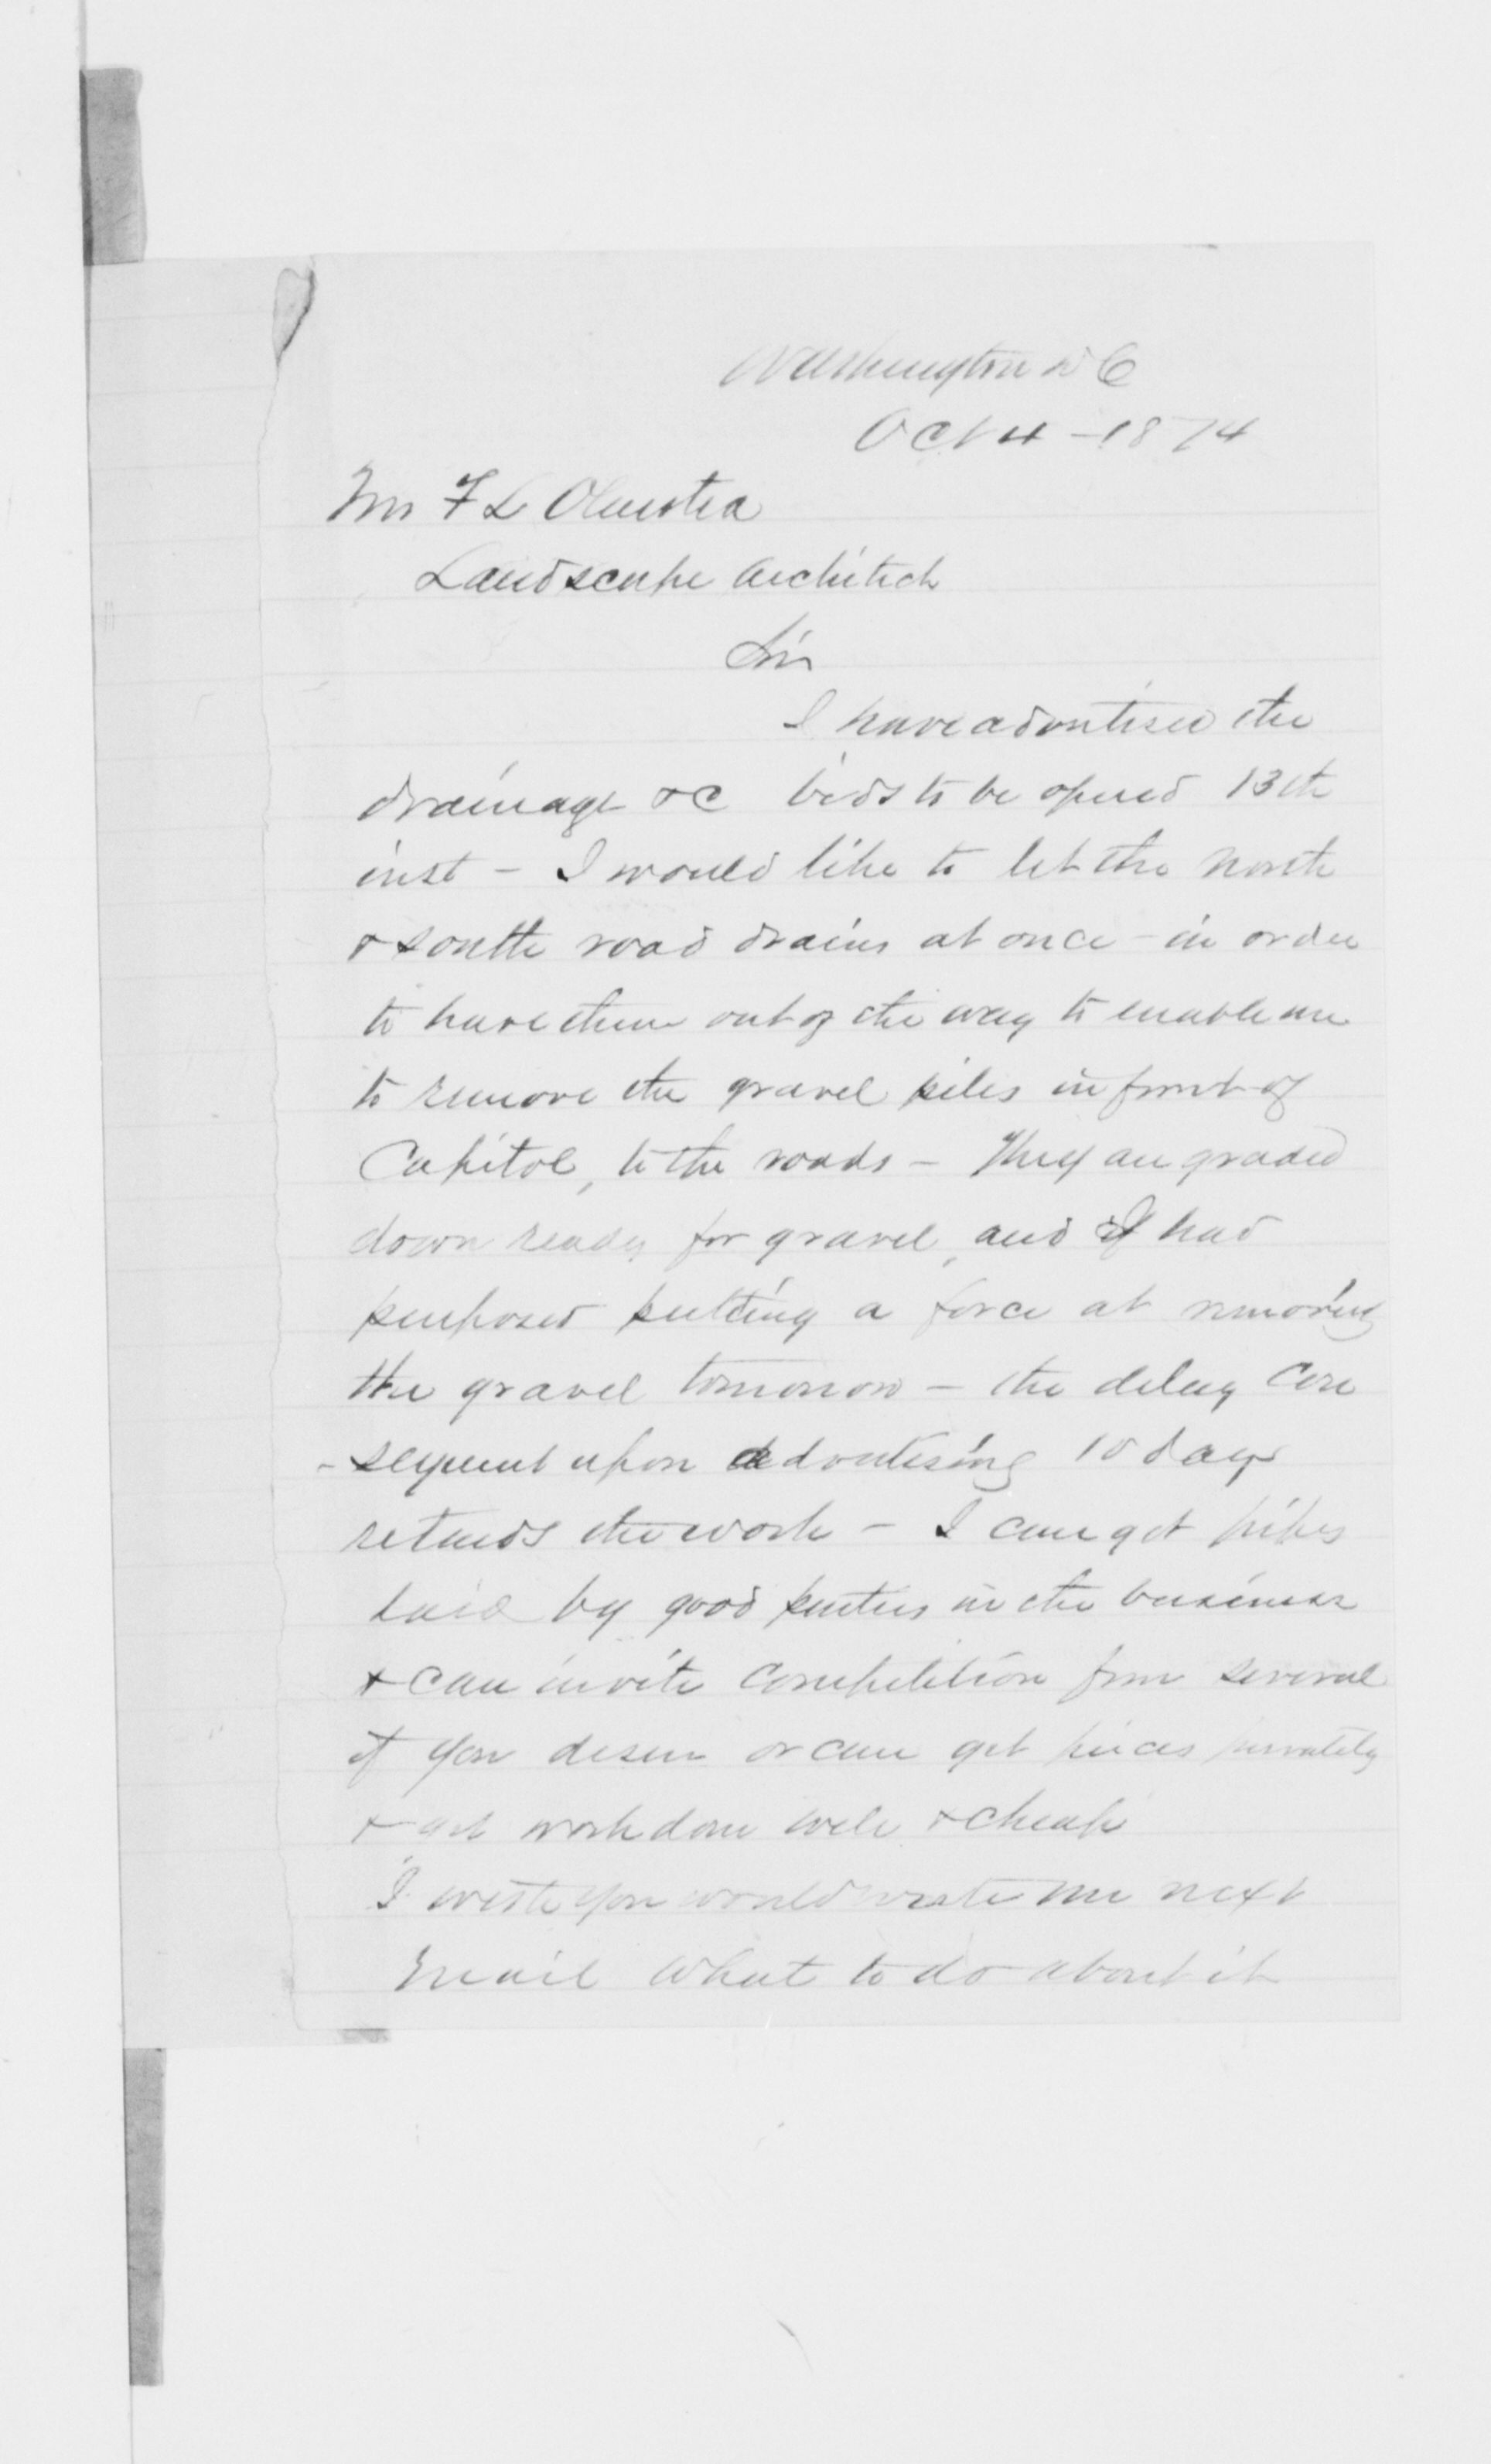 Washington D C
Oct 4 - 1874
Mr F L Olmsted
Landscape Architect
Sir
I have advertised the
drainage &c bids to be opened 13th
inst - I would like to let the north
& south road drains at once - in order
to have them out of the way to enable me
to remove the gravel piles in front of
Capitol, to the roads - They are graded
down ready for gravel, and I had
purposed putting a force at removing
the gravel tomorrow - the delay con
-sequent upon advertising 10 days
retards the work - I can get pipes
laid by good parties in the business
& can invite competition from several
if you desire or can get prices privately
& get work done well & cheap
I wish you would write me next
mail what to do about it